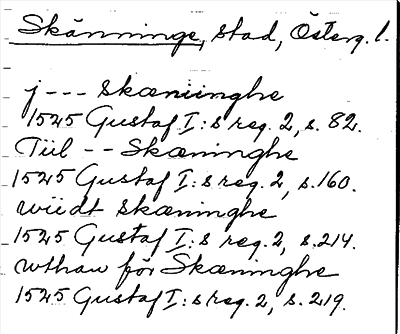 Skänninge, stad, Österg. l.
j --- skæninghe
1525 Gustaf I:s reg. 2, s. 82.
Tiil -- Skæninghe
1525 Gustaf I:s reg. 2, s. 160.
wiidt skæninghe
1525 Gustaf I:s reg. 2, s. 214.
wthan för Skæninghe
1525 Gustaf I:s reg. 2, s. 219.